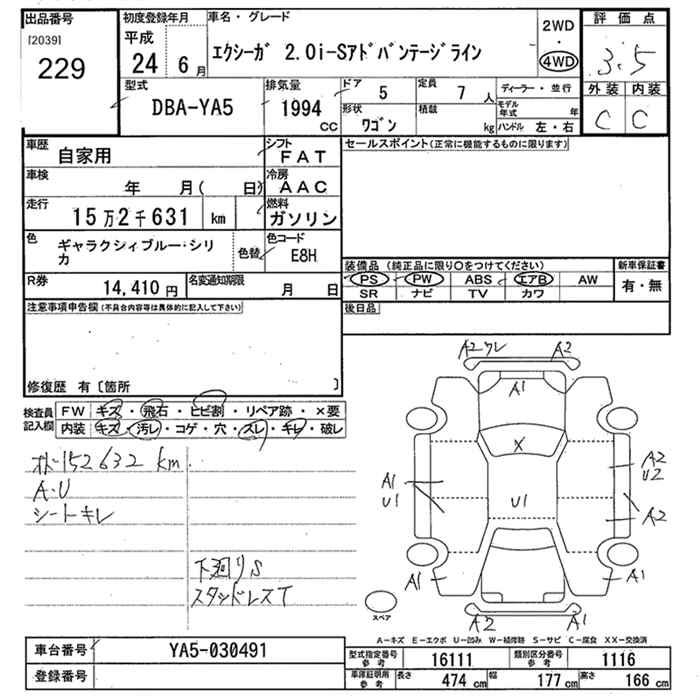 出品番号 初度登録年月 車名・グレード 2WD ・ 4WD 評価点
[2039] 229
平成 24 6月
エクシーガ 2.0i-Sアドバンテージライン
3.5
外装 内装
C C
型式 DBA-YA5 排気量 1994 CC
ドア 5 定員 7 人 ディーラー・並行
形状 ワゴン 積載 kg モデル年式 年
ハンドル 左・右
車歴 自家用 シフト FAT
セールスポイント(正常に機能するものに限ります)
車検 年 月( 日) 冷房 AAC
走行 15万2千631 km 燃料 ガソリン
色 ギャラクシィブルー・シリカ 色替 色コード E8H
装備品 (純正品に限り○をつけてください) 新車保証書
PS PW ABS エアB AW 有・無
SR ナビ TV カワ
R券 14,410円 名変通知期限 月 日
後日品
注意事項申告欄 (不具合内容等は具体的に記入して下さい)
修復歴 有〔箇所 〕
検査員記入欄
FW キズ・飛石・ヒビ割・リペア跡・×要
内装 キズ・汚レ・コゲ・穴・スレ・キレ・破レ
オト152632 km
A・U
シートキレ
下廻りS
スタッドレスT
A2ワレ A2
A1
X
A1 U1
U1
A2 U2
A2
A1 A1
A2 A1
スペア
A-キズ E-エクボ U-凹み W-補修跡 S-サビ C-腐食 XX-交換済
車台番号 YA5-030491
登録番号
型式指定番号 参考 16111 類別区分番号 参考 1116
車庫証明用 参考 長さ 474 cm 幅 177 cm 高さ 166 cm